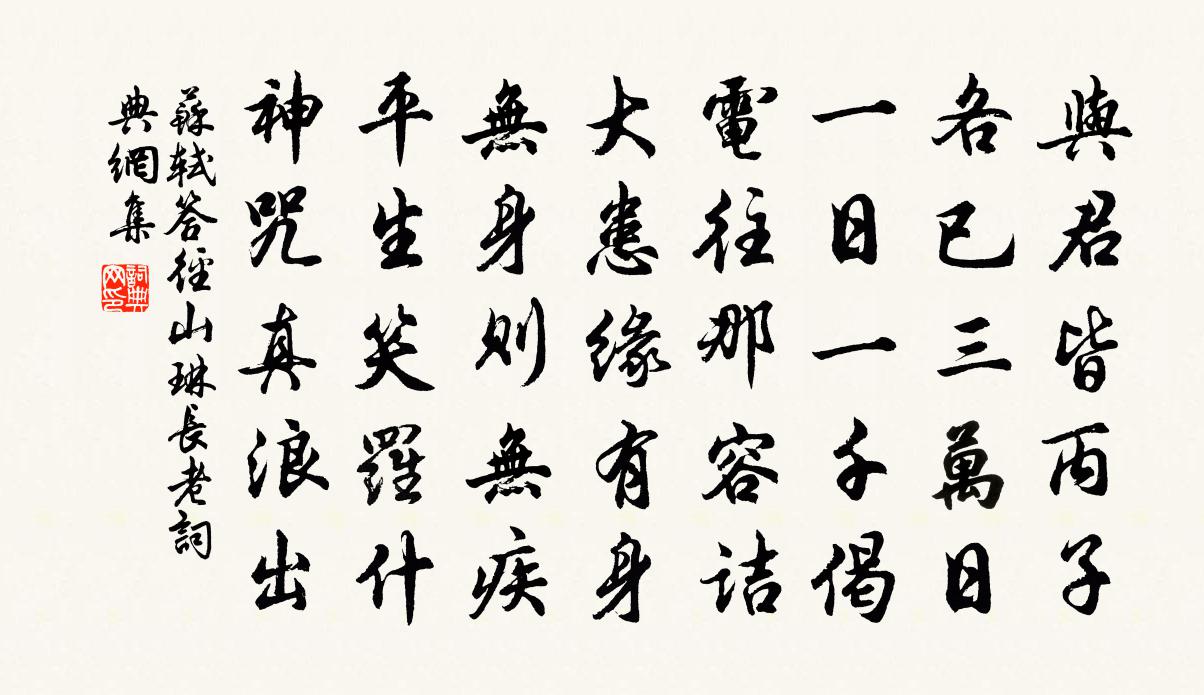 與君皆丙子
各已三萬日
一日一千偈
電往那容詰
大患緣有身
無身則無疾
平生笑羅什
神咒真浪出
蘇軾答徑山琳長老詞
典網集
詞典网印